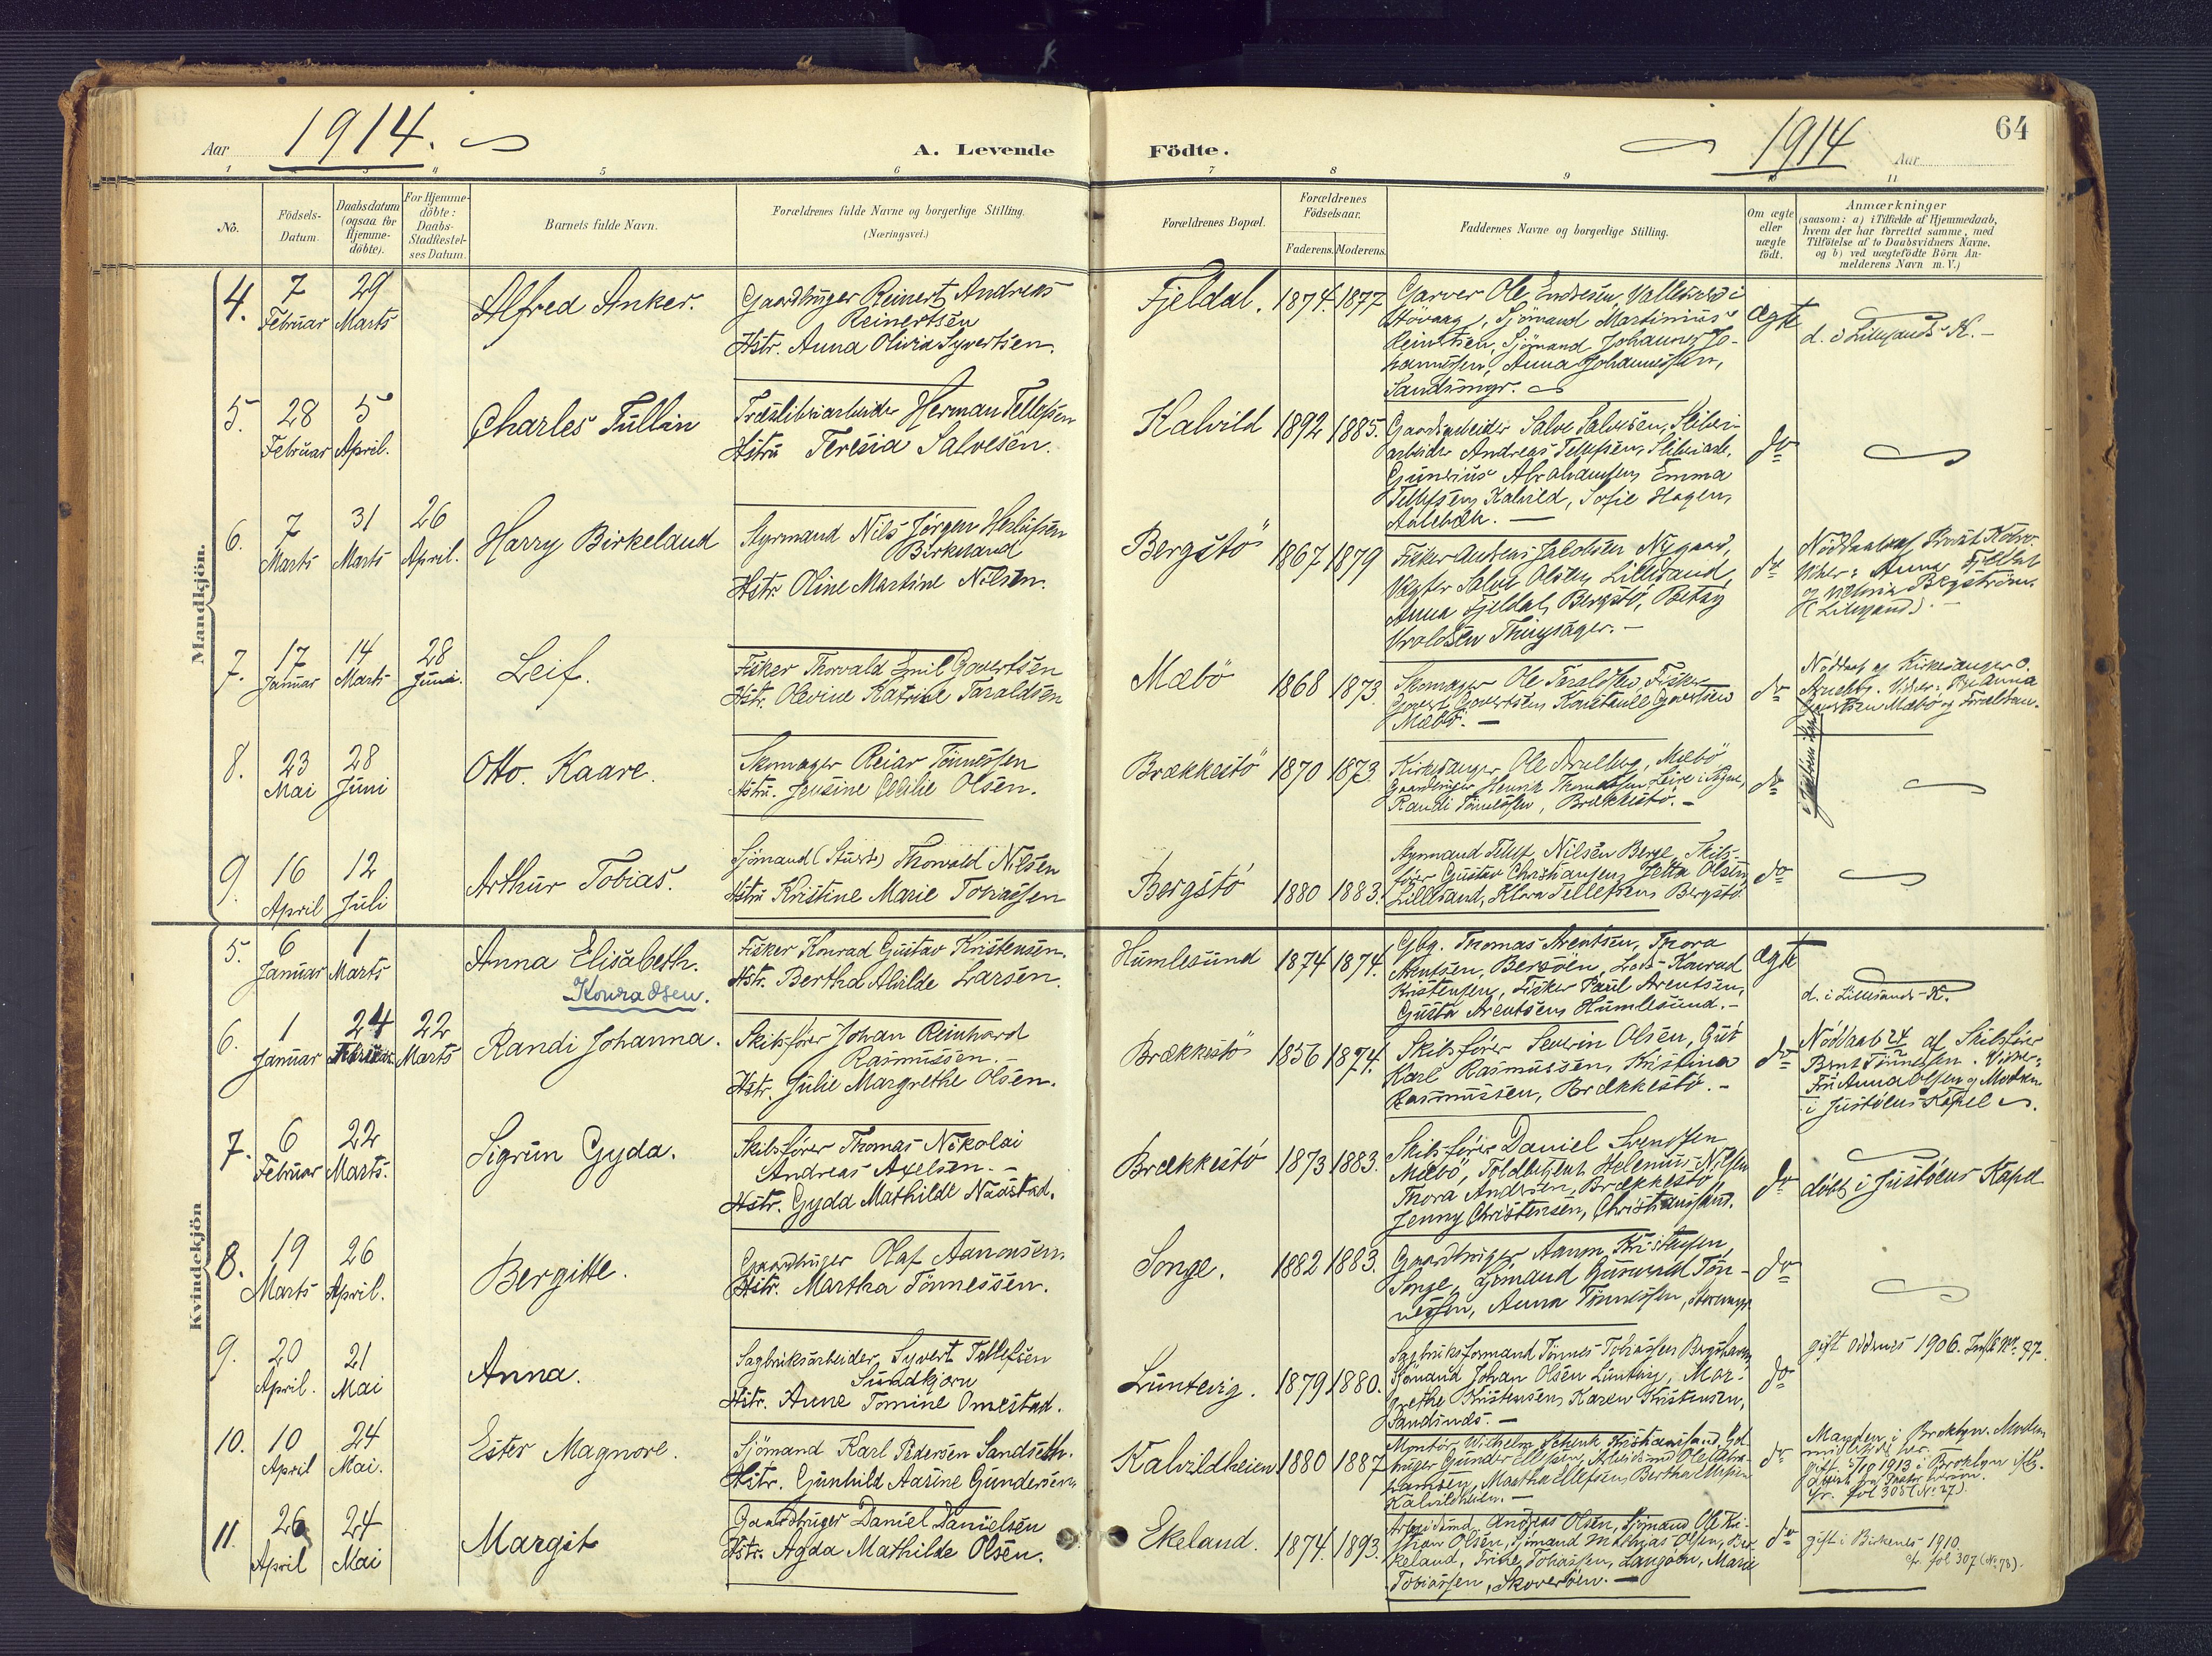 Aar 1914.
A. Levende
Födte.
1914 Aar
64
1 3 4 5 6 7 8 9 10 11
No.
Födsels-
Datum.
Daabsdatum
(ogsaa for
Hjemme-
döbte).
For Hjemme-
döbte:
Daabs-
Stadfæstel-
ses Datum.
Barnets fulde Navn.
Forældrenes fulde Navne og borgerlige Stilling.
(Næringsvei.)
Forældrenes Bopæl.
Forældrenes
Födselsaar.
Faderens. Moderens.
Faddernes Navne og borgerlige Stilling.
Om ægte
eller
uægte
födt.
Anmærkninger
(saasom: a) i Tilfælde af Hjemmedaab,
hvem der har forrettet samme, med
Tilföielse af to Daabsvidners Navne,
og b) ved uægtefödte Börn An-
melderens Navn m. V.)
Mandkjön.
4. 7 Februar 29 Marts
Alfred Anker.
Gaardbruger Reinert Andreas
Reinertsen
Hstr. Anna Olivia Syvertsen.
Fjeldal. 1874. 1877
Garver Ole Endresen, Vallesværd i
Hövaag, Sjömand Martinius
Reinertsen, Sjömand Johannes Jo-
hannessen, Anna Johannessen,
ægte
d. i Lillesands K.
5. 28 Februar 5 April.
Charles Tullin
Træsliberiarbeider Herman Tellefsen
Hstru Teresia Salvesen.
Kalvild 1892 1885.
Gaardarbeider Salve Salvesen, Sliberi-
arbeider Andreas Tellefsen, Sliberiarb.
Abrahamsen, Emma
Tellefsen, Kalvild, Sofie Hagen,
do
6. 7 Marts 31 Marts 26 April.
Harry Birkeland
Styrmand Nils Jörgen
Birkeland
Hstr. Oline Martine Nilsen.
Bergstö 1867 1879
Fisker Andreas Jakobsen Nygaard,
Vagter Salve Olsen, Lillesand,
Anna Fjeldal, Bergstö, Betzy
do
Nöddaab af
Vidner: Anna Fjeldal
og Bergström.
(Lillesand).
7. 17 Januar 14 Marts 28 Juni.
Leif.
Fisker Thorvald Emil Govertsen
Hstr. Olevine Katrine Taraldsen
Mæbö 1868 1873.
Skomager Ole Taraldsen, Fisker
Govert Govertsen, Konstanse Govertsen
Mæbö.
do
Nöddaab af Kirkesanger O.
Anna
Govertsen Mæbö og
8. 23 Mai 28 Juni
Otto. Kaare.
Skomager Reiar Tönnessen
Hstru. Jensine Cecilie Olsen.
Brækkestö 1870 1873
Kirkesanger Ole Mæbö
Gaardbruger Henrik
Randi Tönnessen, Brækkestö.
do
9. 16 April 12 Juli
Arthur Tobias.
Sjömand (Stuert) Thorvald Nilsen
Hstru Kristine Marie Tobiassen
Bergstö 1880 1883.
Styrmand Tellef Nilsen Berge, Skibs-
förer Gustav Christiansen, Jetta Olsen
Lillesand, Klara Tellefsen, Bergstö.
do
Kvindekjön
5. 6 Januar 1 Marts
Anna Elisabeth.
Konradsen.
Fisker Konrad Gustav Kristensen.
Hstr. Bertha Alvilde Larsen.
Humlesund 1874 1874.
Gbg. Thomas Arentsen, Thora
Arentsen, Konrad
Kristensen, Fisker Paul Arentsen,
Gusta Arentsen, Humlesund.
ægte
d. i Lillesands K.
6. 1 Januar 24 Februar 22 Marts
Randi Johanna.
Skibsförer Johan Reinhard
Rasmussen.
Hstr. Julie Margrethe Olsen.
Brækkestö 1856 1874.
Skibsförer Severin Olsen, Gut
Karl Rasmussen, Kristina
Rasmussen, Brækkestö.
do
Nöddaab af Skibsförer
Bernt Tönnessen. Vidner:
Fru Anna Olsen og Moderen.
i Justöens Kapel
7. 6 Februar 22 Marts.
Sigrun Gyda.
Skibsförer Thomas Nikolai
Andreas Axelsen.
Hstr. Gyda Mathilde Nadstad.
Brækkestö 1873 1883.
Skibsförer Daniel Svendsen
Mæbö, Toldbetjent Helenius Nilsen
Thora Andersen, Brækkestö,
Jenny Christensen, Christianssand.
do
döbt i Justöens Kapel
8. 19 Marts 26 April.
Bergitte.
Gaardbruger Olaf Aanonsen.
Hstr. Martha Tönnessen.
Songe. 1882 1883.
Gaardbruger Aanon Kristensen,
Songe, Sjömand Gunvald Tön-
nessen, Anna Tönnessen,
do
9. 20 April. 21 Mai
Anna.
Sagbruksarbeider, Syvert Tellefsen
Sundkjørn
Hstr. Anne Tomine Omestad.
Luntevig. 1879 1880.
Sagbruksformand Tönnes Tobiassen
Sjömand Johan Olsen Luntevig, Mar-
grethe Kristensen, Karen Kristensen,
Sandsnæs.
do
gift Oddernes 1906.
10. 10 April 24 Mai.
Ester Magnore.
Sjömand Karl Pedersen Sandseth.
Hstr. Gunhilde Aasine Gundersen.
Kalvildheien. 1880 1887
Montör Wilhelm Schenk Kristianssand, Gd-
bruger Gunder Ellefsen,
Martha Ellefsen, Bertha
Kalvildheien.
do
Manden i Broklyn. Moderen
gift 1913 i Broklyn
fol 305 (No. 27).
11. 26 April 24 Mai
Margit
Gaardbruger Daniel Danielsen
Hstr. Agda Mathilde Olsen.
Ekeland. 1874. 1893.
Andreas Olsen, Sjömand Ole Kri-
stian Olsen, Sjömand Mathias Olsen,
Tobiassen, Marie
Tobiassen, Skoveröen.
do
gift i Birkenes 1910.
cfr. fol 307 (No 73).